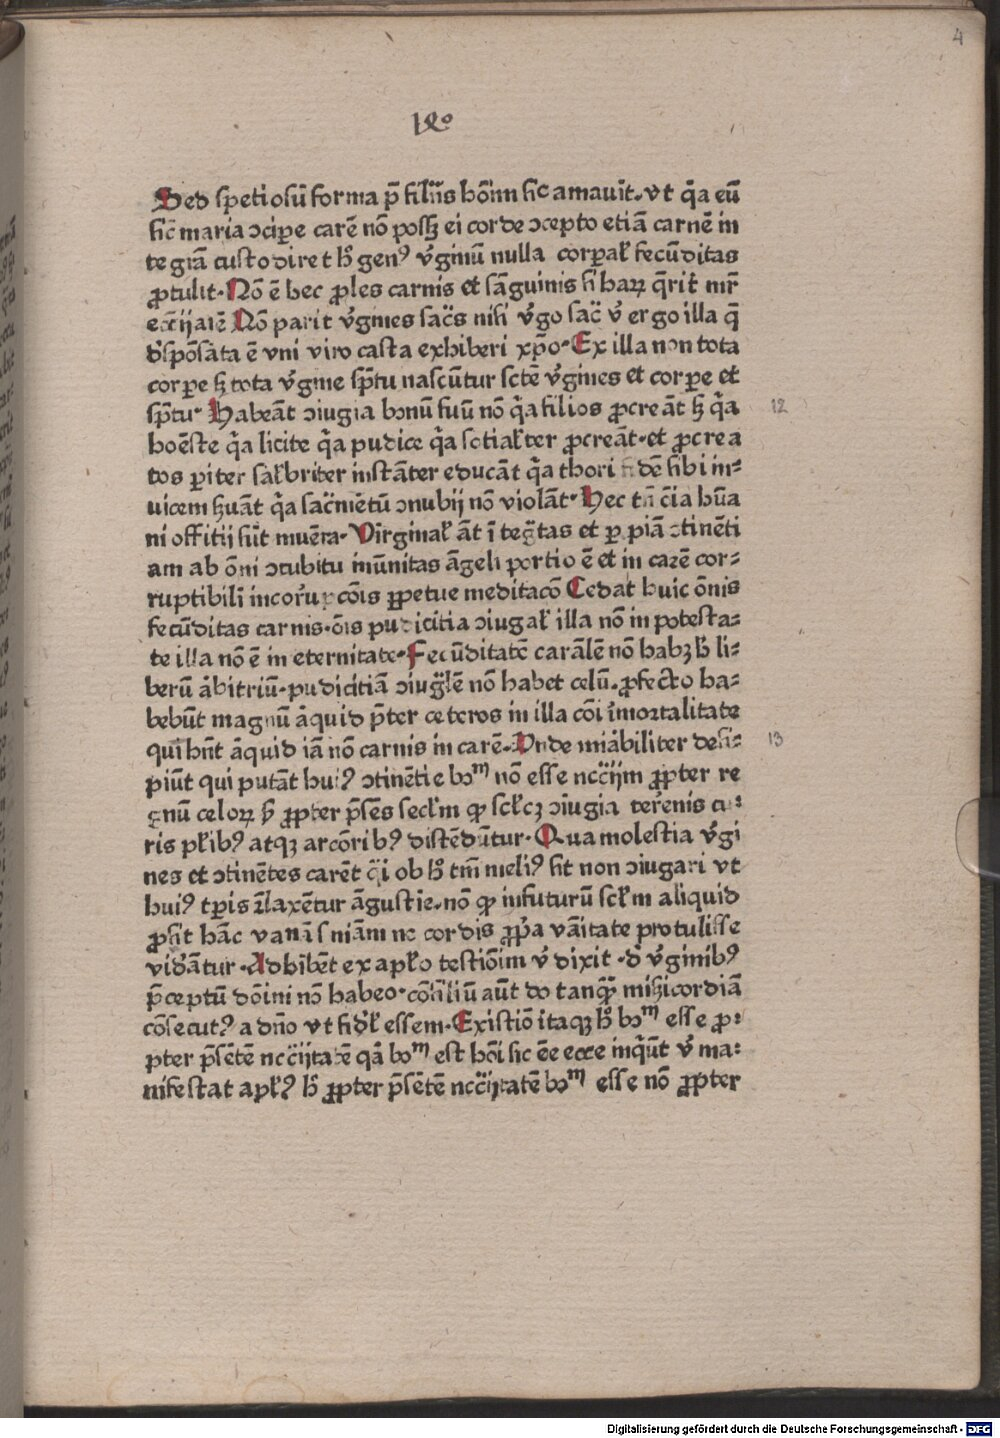 4
Sed spetiosū forma p̄ filijs hōim sic amauit. vt q̄a eū
sic maria ɔcipe carnē nō possꝫ ei corde ɔcepto etiā carnē in
tegrā custodiret hͦ genꝰ v̄gniū nulla corpał fecūditas
ꝓtulit. Nō ē hec ꝓles carnis et sāguinis si harꝝ q̄rit mr̄
Nō parit v̄gines sac̄s nisi v̄go sac̄ v̄ ergo illa q̄
dꝭpōsata ē vni viro casta exhiberi xp̄o. Ex illa non tota
corpe sꝫ tota v̄gine sp̄tu nascūtur sctē v̄gines et corpe et
sp̄tu. Habeāt ɔiugia bonū suū nō q̄a filios ꝓcreāt sꝫ q̄a 12
hoēste q̄a licite q̄a pudice q̄a sotiałter ꝓcreāt. et ꝓcrea
tos pariter sałbriter instāter educāt q̄a thori fidē sibi in-
uicem ꝫuāt q̄a sac̄mētū ɔnubij nō violāt. Hec tn̄ oīa hūa
ni offitij sūt muēra. Virginał āt ītegritas et ꝑ piā ɔtinēti
am ab ōni ɔcubitu imūnitas āgeli portio ē et in carnē cor-
ruptibili incorrup cōis ꝑpetue meditacō Cedat huic ōnis
fecūditas carnis. ōis pudicitia ɔiugał illa nō in potesta-
te illa nō ē in eternitate. Fecūditatē carālē nō habꝫ hͦ li-
berū ābitriū. pudicitiā ɔiugālē nō habet celū. ꝓfecto ha-
bebūt magnū āquid p̄ter ceteros in illa cōi īmortalitate
qui hn̄t āquid iā nō carnis in carnē. Vnde mīabiliter desi- 13
piūt qui putāt huiꝰ ɔtinētie boᵐ nō esse ncc̄ijm ꝓpter re
gnū celoꝝ sꝫ ꝓpter p̄sēs secłm ꝙ scłcꝫ ɔiugia terrenis cu-
ris płibꝰ atqꝫ arcōribꝰ distēdūtur. Qua molestia v̄gi
nes et ɔtinētes carēt q̄i ob hͦ tm̄ meliꝰ sit non ɔiugari vt
huiꝰ tꝑis r̄laxētur āgustie. nō ꝙ infuturū scłm aliquid
ꝓsit hāc vanā sn̄iam ne cordis ꝓp̄a vaītate protulisse
vidāntur. Adhibēt ex apło testiōim v̄ dixit. d̄ v̄ginibꝰ
p̄ceptū dōini nō habeo. cōsiliū aūt do tanqꝙ miꝫicordiā
cōsecutꝰ a dn̄o vt fidł essem. Existiō itaqꝫ hͦ boᵐ esse ꝓ-
pter p̄sētē ncc̄ijtatē qā boᵐ est hōi sic ēe ecce inqūt v̄ ma-
nifestat apłꝰ hͦ ꝓpter p̄sētē ncc̄ijtatē boᵐ esse nō ꝓpter
Digitalisierung gefördert durch die Deutsche Forschungsgemeinschaft - DFG